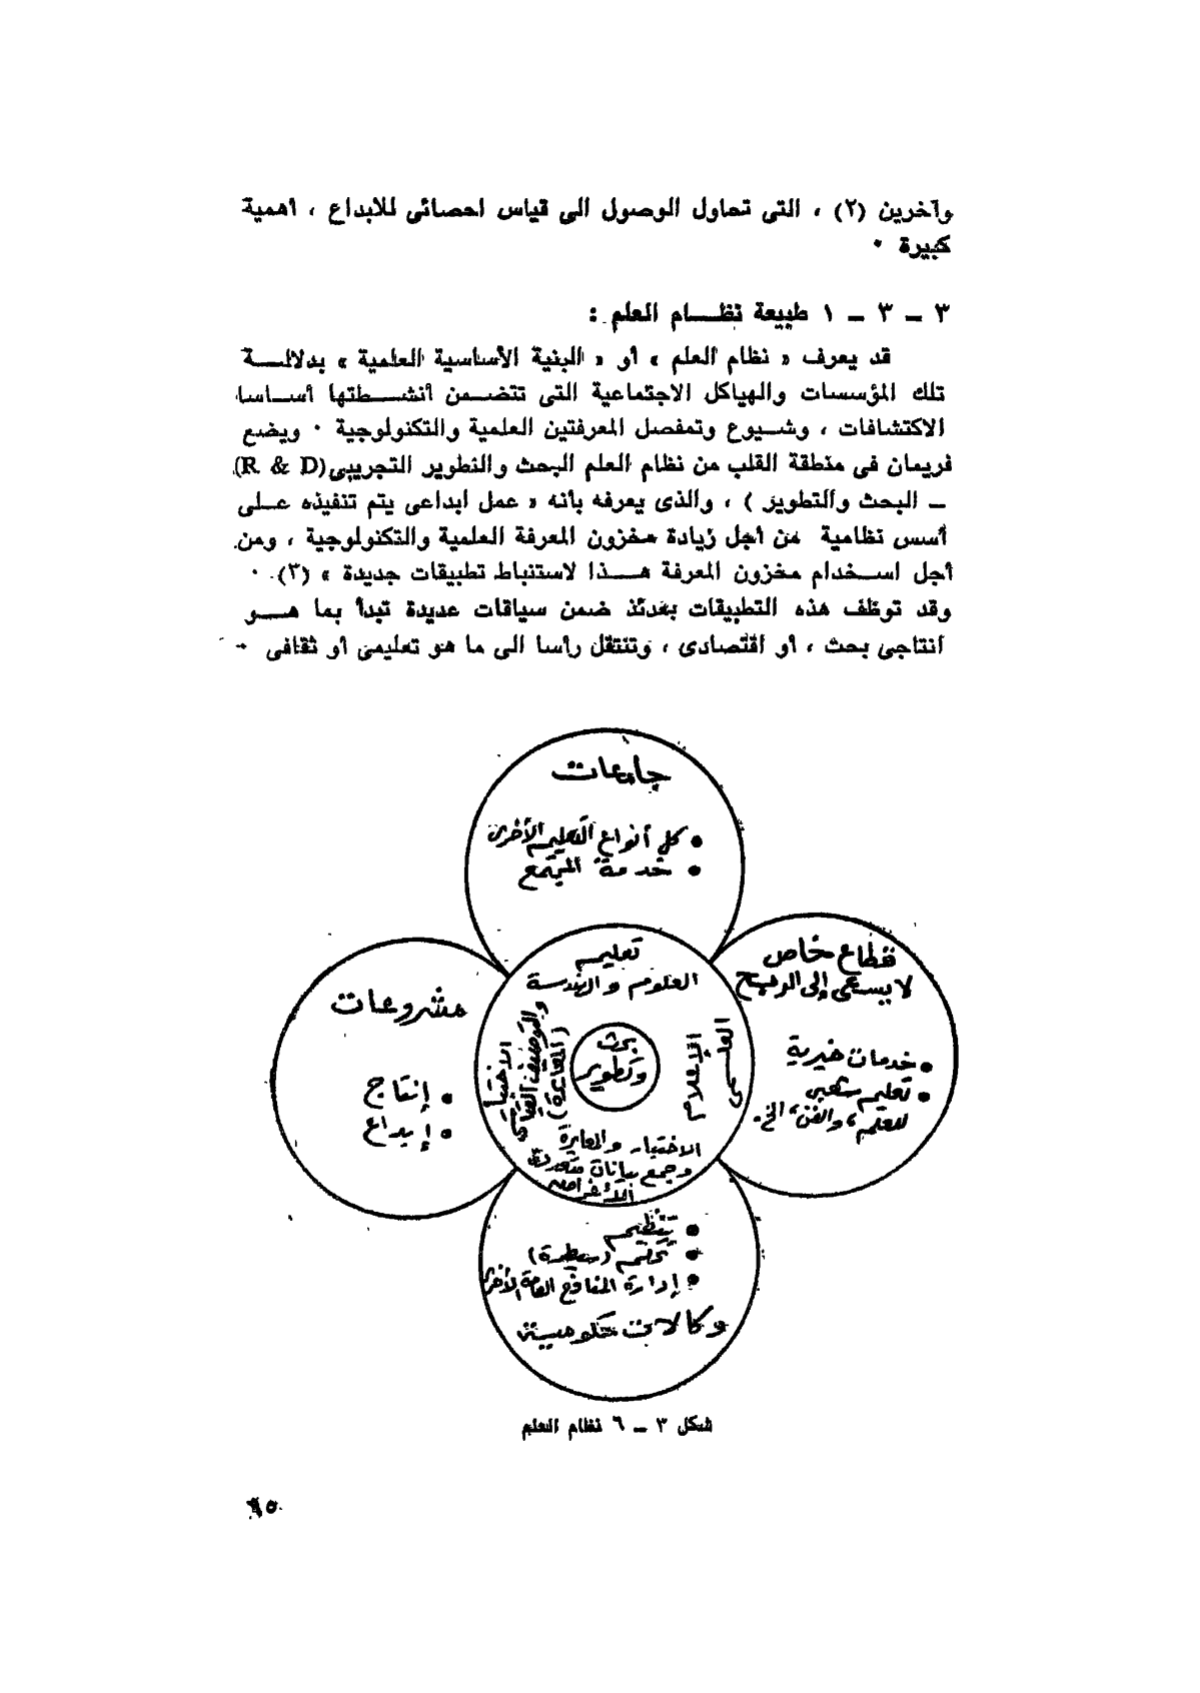 وآخرين (٢) ، التى تحاول الوصول الى قياس احصائى للابداع ، اهمية
كبيرة ٠
٣ ــ ٣ ــ ١ طبيعة نظـــام العلم :
قد يعرف « نظام العلم » أو « البنية الأساسية العلمية » بدلالـــة
تلك المؤسسات والهياكل الاجتماعية التى تتضــمن أنشــطتها أســاسا
الاكتشافات ، وشــيوع وتمفصل المعرفتين العلمية والتكنولوجية ٠ ويضع
فريمان فى منطقة القلب من نظام العلم البحث والتطوير التجريبى (R & D)
ــ البحث والتطوير ) ، والذى يعرفه بأنه « عمل ابداعى يتم تنفيذه عــلى
أسس نظامية من أجل زيادة مخزون المعرفة العلمية والتكنولوجية ، ومن
أجل اســخدام مخزون المعرفة هــذا لاستنباط تطبيقات جديدة » (٣) ٠
وقد توظف هذه التطبيقات بعدئذ ضمن سياقات عديدة تبدأ بما هــو
انتاجى بحث ، أو اقتصادى ، وتنتقل رأسا الى ما هو تعليمى أو ثقافى ٠
جامعات
• كل أنواع التعليم الأخرى
• خدمة المجتمع
قطاع خاص
لا يسعى إلى الربح
• خدمات خيرية
• تعليم شعبى
للعلم، والفن، الخ.
مشروعات
• إنتاج
• إبداع
تعليم
العلوم والهندسة
الإعلام
العلمى
بحث
وتطوير
الاختبار
والتوصيف القياسى
الاختبار والمعايرة
وجمع بيانات متعددة
الأغراض
• تنظيم
• تحكم (سيطرة)
• إدارة المنافع العامة الأخرى
وكالات حكومية
شكل ٣ ــ ٦ نظام العلم
٩٥